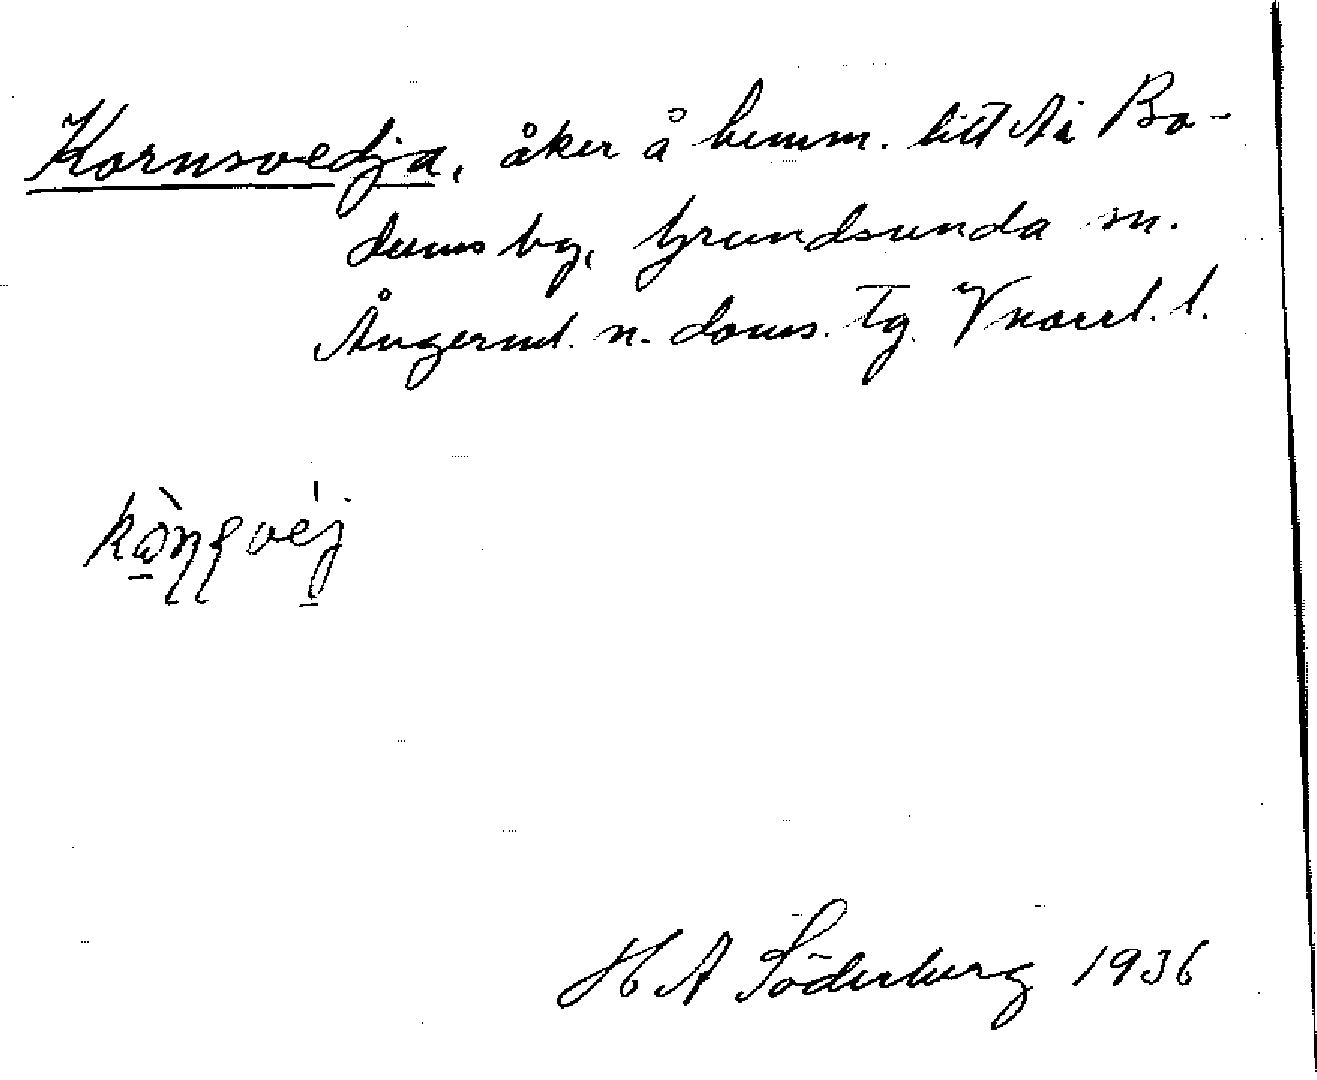 Kornsvedja, åker å hemm. litt Ai Bo-
dums by, Grundsunda sn.
Ångerml. n. doms. Tg. Vnorrl. l.
H A Söderberg 1936